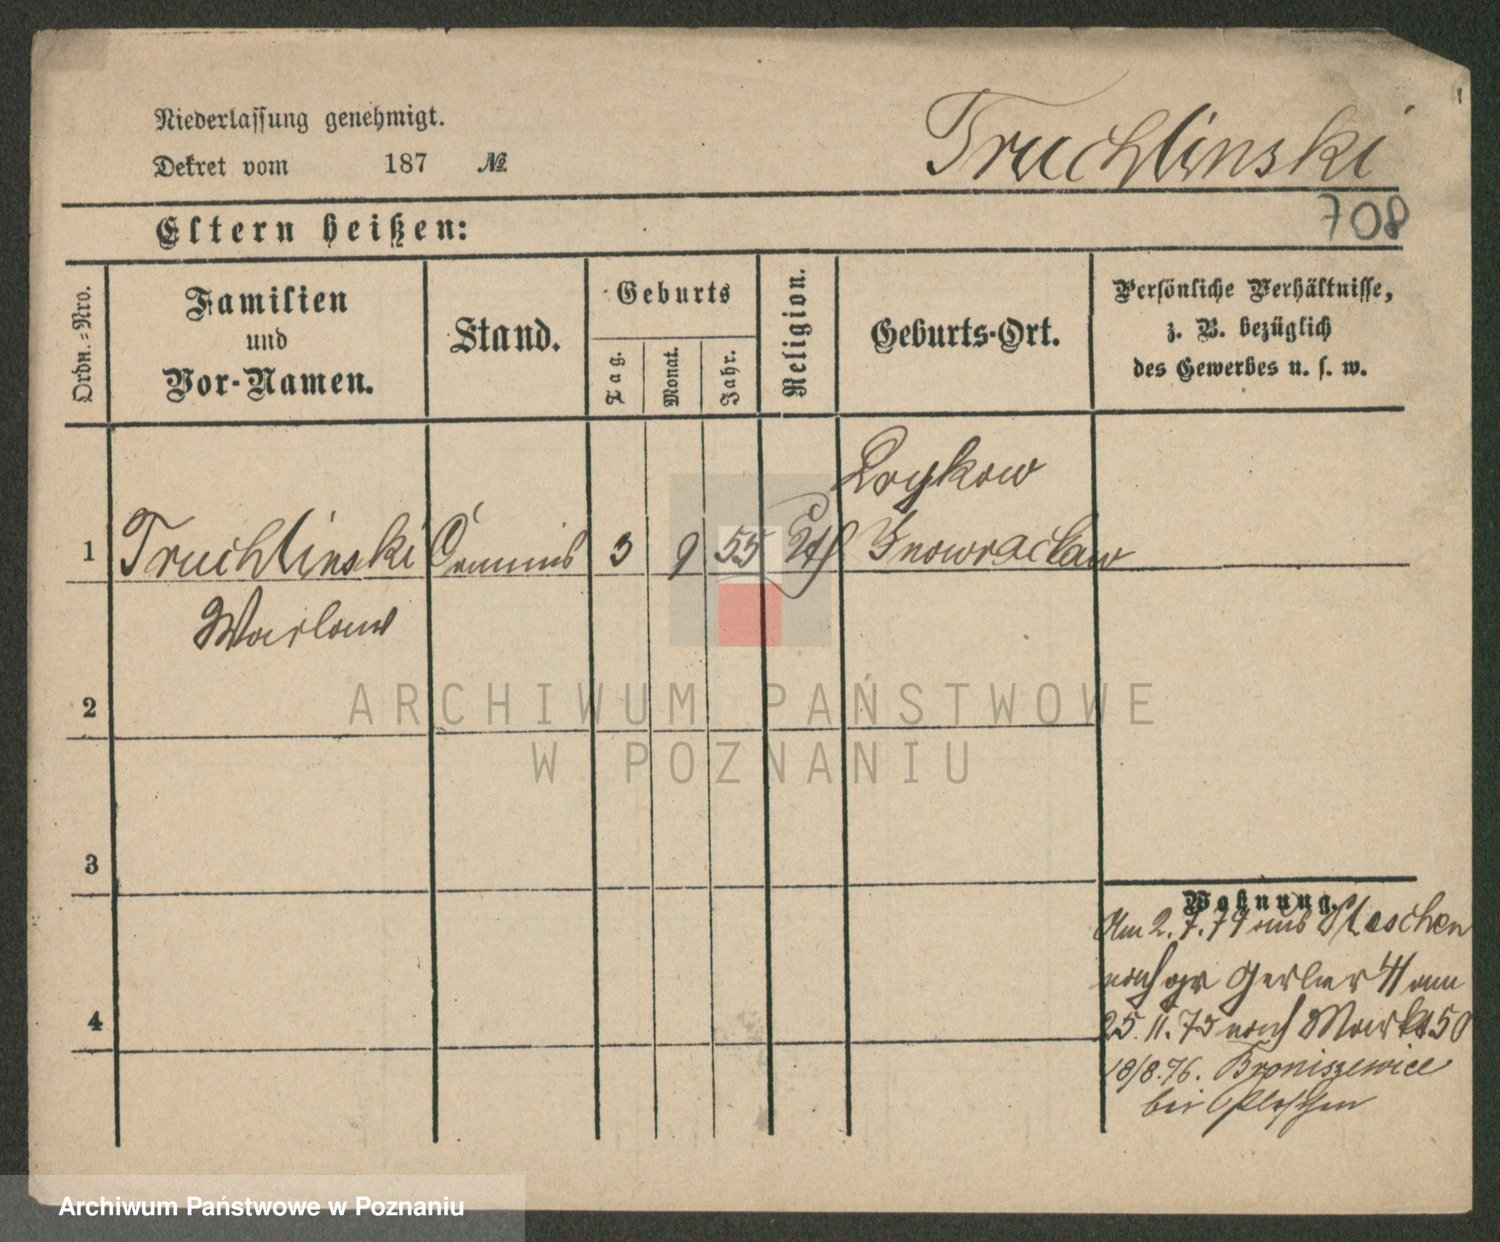 Niederlassung genehmigt.
Dekret vom 187 №
Truchlinski
708
Eltern heißen:
Ordn.=Nro.
Familien
und
Vor-Namen.
Stand.
Geburts
Tag.
Monat.
Jahr.
Religion.
Geburts-Ort.
Persönliche Verhältnisse,
z. B. bezüglich
des Gewerbes u. s. w.
1 Truchlinski Commis 3 9 55 Inowraclaw
2
3
4
Wohnung.
Am 2.7.74 aus Pleschen
nach gr Gerber 41 am
25.11.75 nach Markt 50
18/8.76. Broniszewice
bei Pleschen
ARCHIWUM PAŃSTWOWE
W POZNANIU
Archiwum Państwowe w Poznaniu